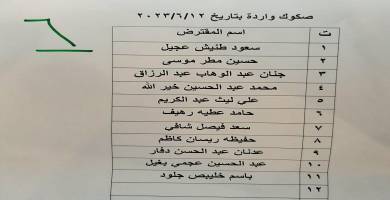 صكوك واردة بتاريخ ٢٠٢٣/٦/١٢
ت اسم المقترض
١ سعود طنيش عجيل
٢ حسين مطر موسى
٣ جنان عبد الوهاب عبد الرزاق
٤ محمد عبد الحسين خير الله
٥ علي ليث عبد الكريم
٦ حامد عطيه رهيف
٧ سعد فيصل شافي
٨ حفيظه ريسان كاظم
٩ عدنان عبد الحسن دفار
١٠ عبد الحسين عجمي بغيل
١١ باسم خليبص جلود
١٢